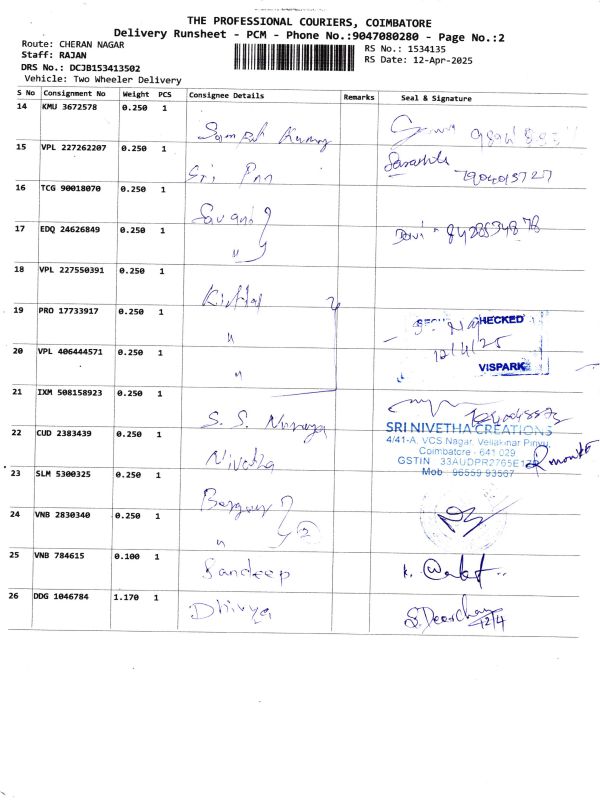 THE PROFESSIONAL COURIERS, COIMBATORE
Delivery Runsheet - PCM - Phone No.:9047080280 - Page No.:2
Route: CHERAN NAGAR
RS No.: 1534135
Staff: RAJAN
RS Date: 12-Apr-2025
DRS No.: DCJB153413502
Vehicle: Two Wheeler Delivery
S No Consignment No Weight PCS Consignee Details Remarks Seal & Signature
14 KMU 3672578 0.250 1
15 VPL 227262207 0.250 1
Sri
16 TCG 90018070 0.250 1
17 EDQ 24626849 0.250 1
"
18 VPL 227550391 0.250 1
19 PRO 17733917 0.250 1
"
HECKED
20 VPL 406444571 0.250 1
12/4/25
"
VISPARK
21 IXM 508158923 0.250 1
S. S.
SRI NIVETHA CREATIONS
22 CUD 2383439 0.250 1
4/41-A, VCS Nagar, Vellakinar Pirivu,
Nivetha
Coimbatore - 641 029
GSTIN 33AUDPR2765E1
23 SLM 5300325 0.250 1
Mob : 96559 93567
24 VNB 2830340 0.250 1
" 2
25 VNB 784615 0.100 1
Sandeep
K.
26 DDG 1046784 1.170 1
Dhivya
12/4